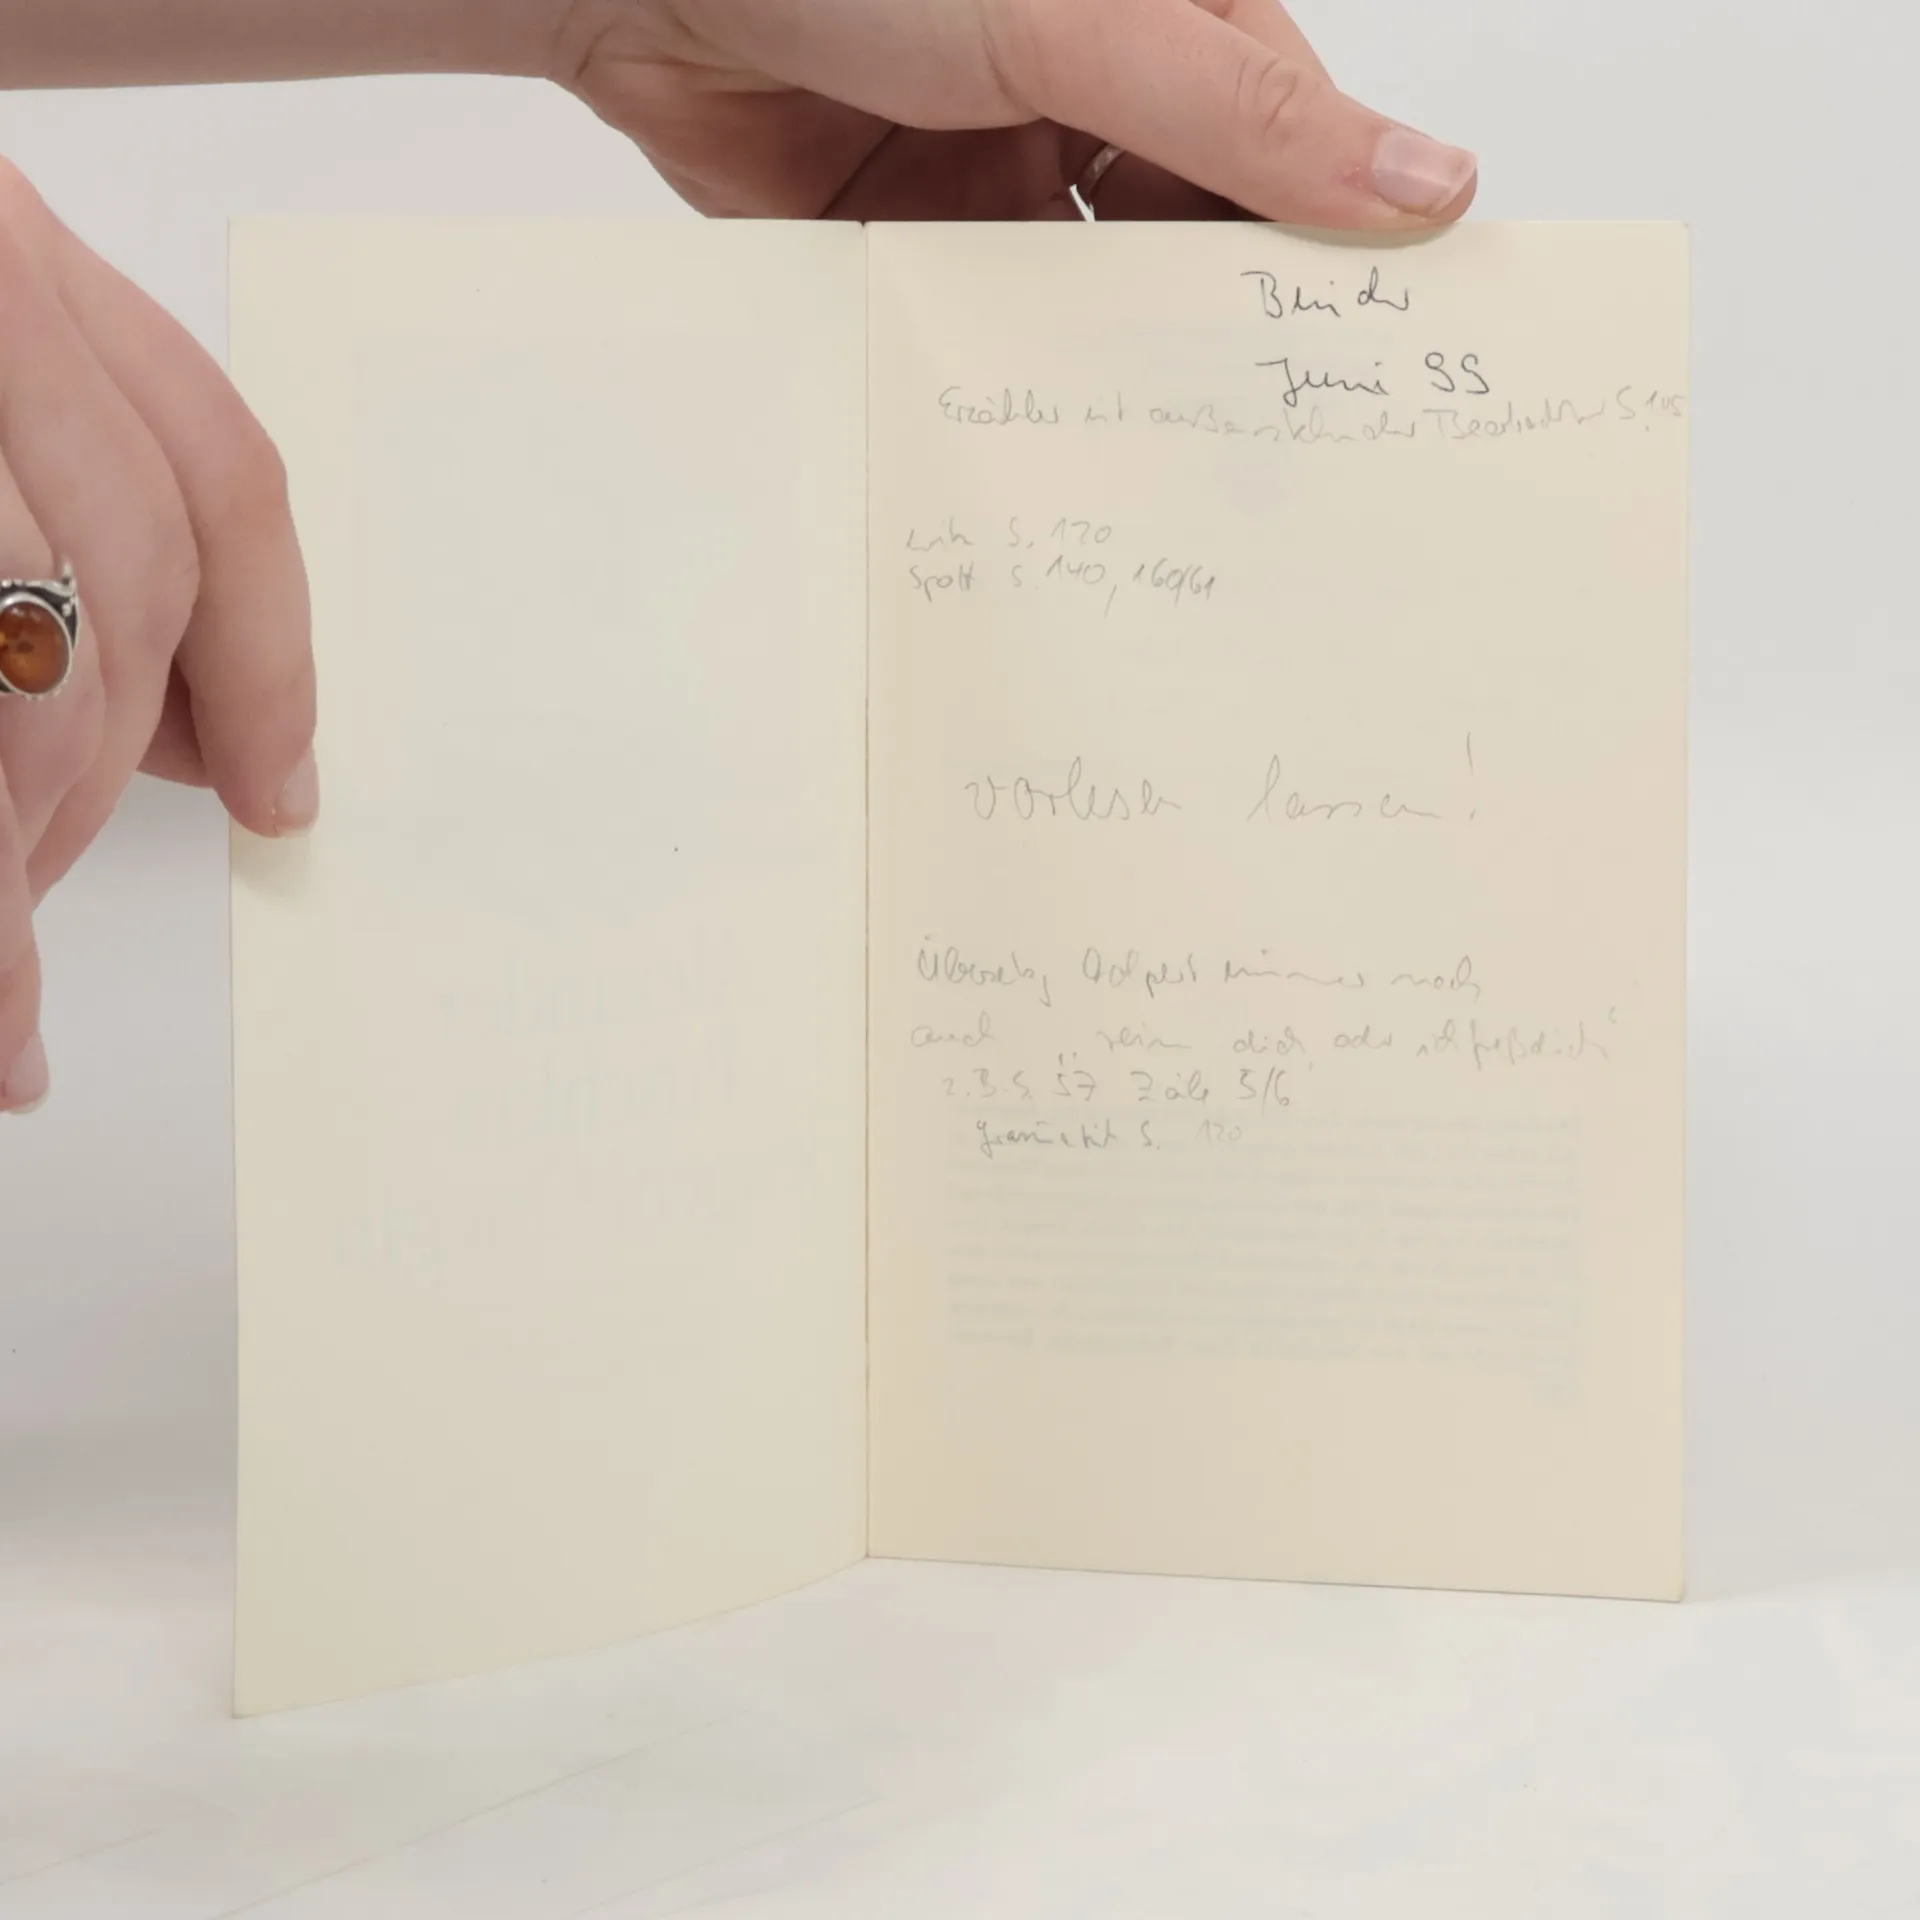 Juni 99
Erzähler ist außenstehender Beobachter S. 105
S. 120
Spott S. 140, 160/61
vorlesen lassen!
Übersetzg holpert immer noch
auch „reim dich oder ich freß dich“
z.B. S. 57 Zeile 5/6
S. 120